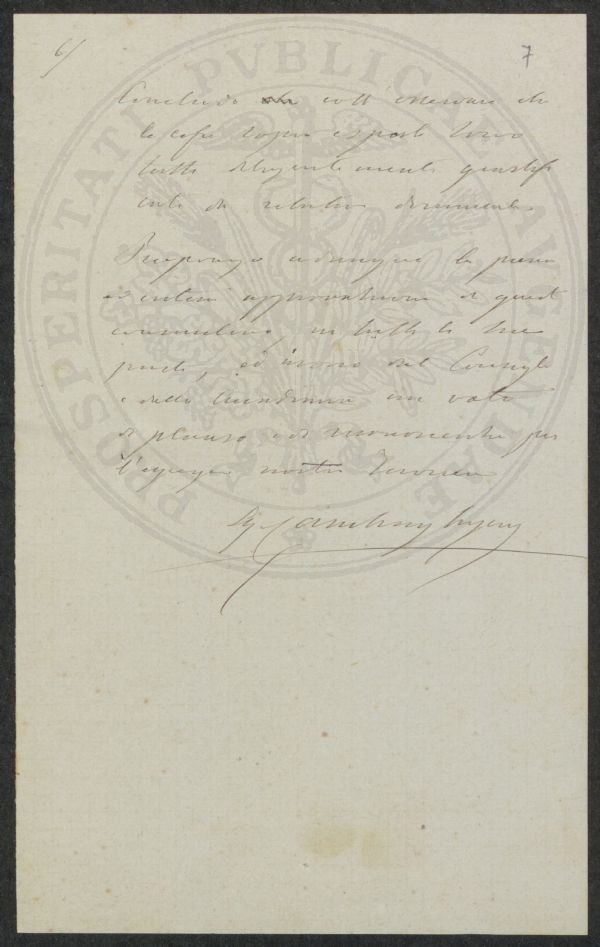 6/
7
Concludo coll'osservare che
le cose sopra esposte sono
tutte diligentemente giustifi
cate da relativi documenti.
Propongo adunque la piena
ed intera approvazione di questo
consuntivo, in tutte le sue
parti, ed invoco dal Consiglio
e dalla un voto
di plauso e di riconoscenza per
l'egregio nostro
PROSPERITATI PVBLICAE AVGENDAE